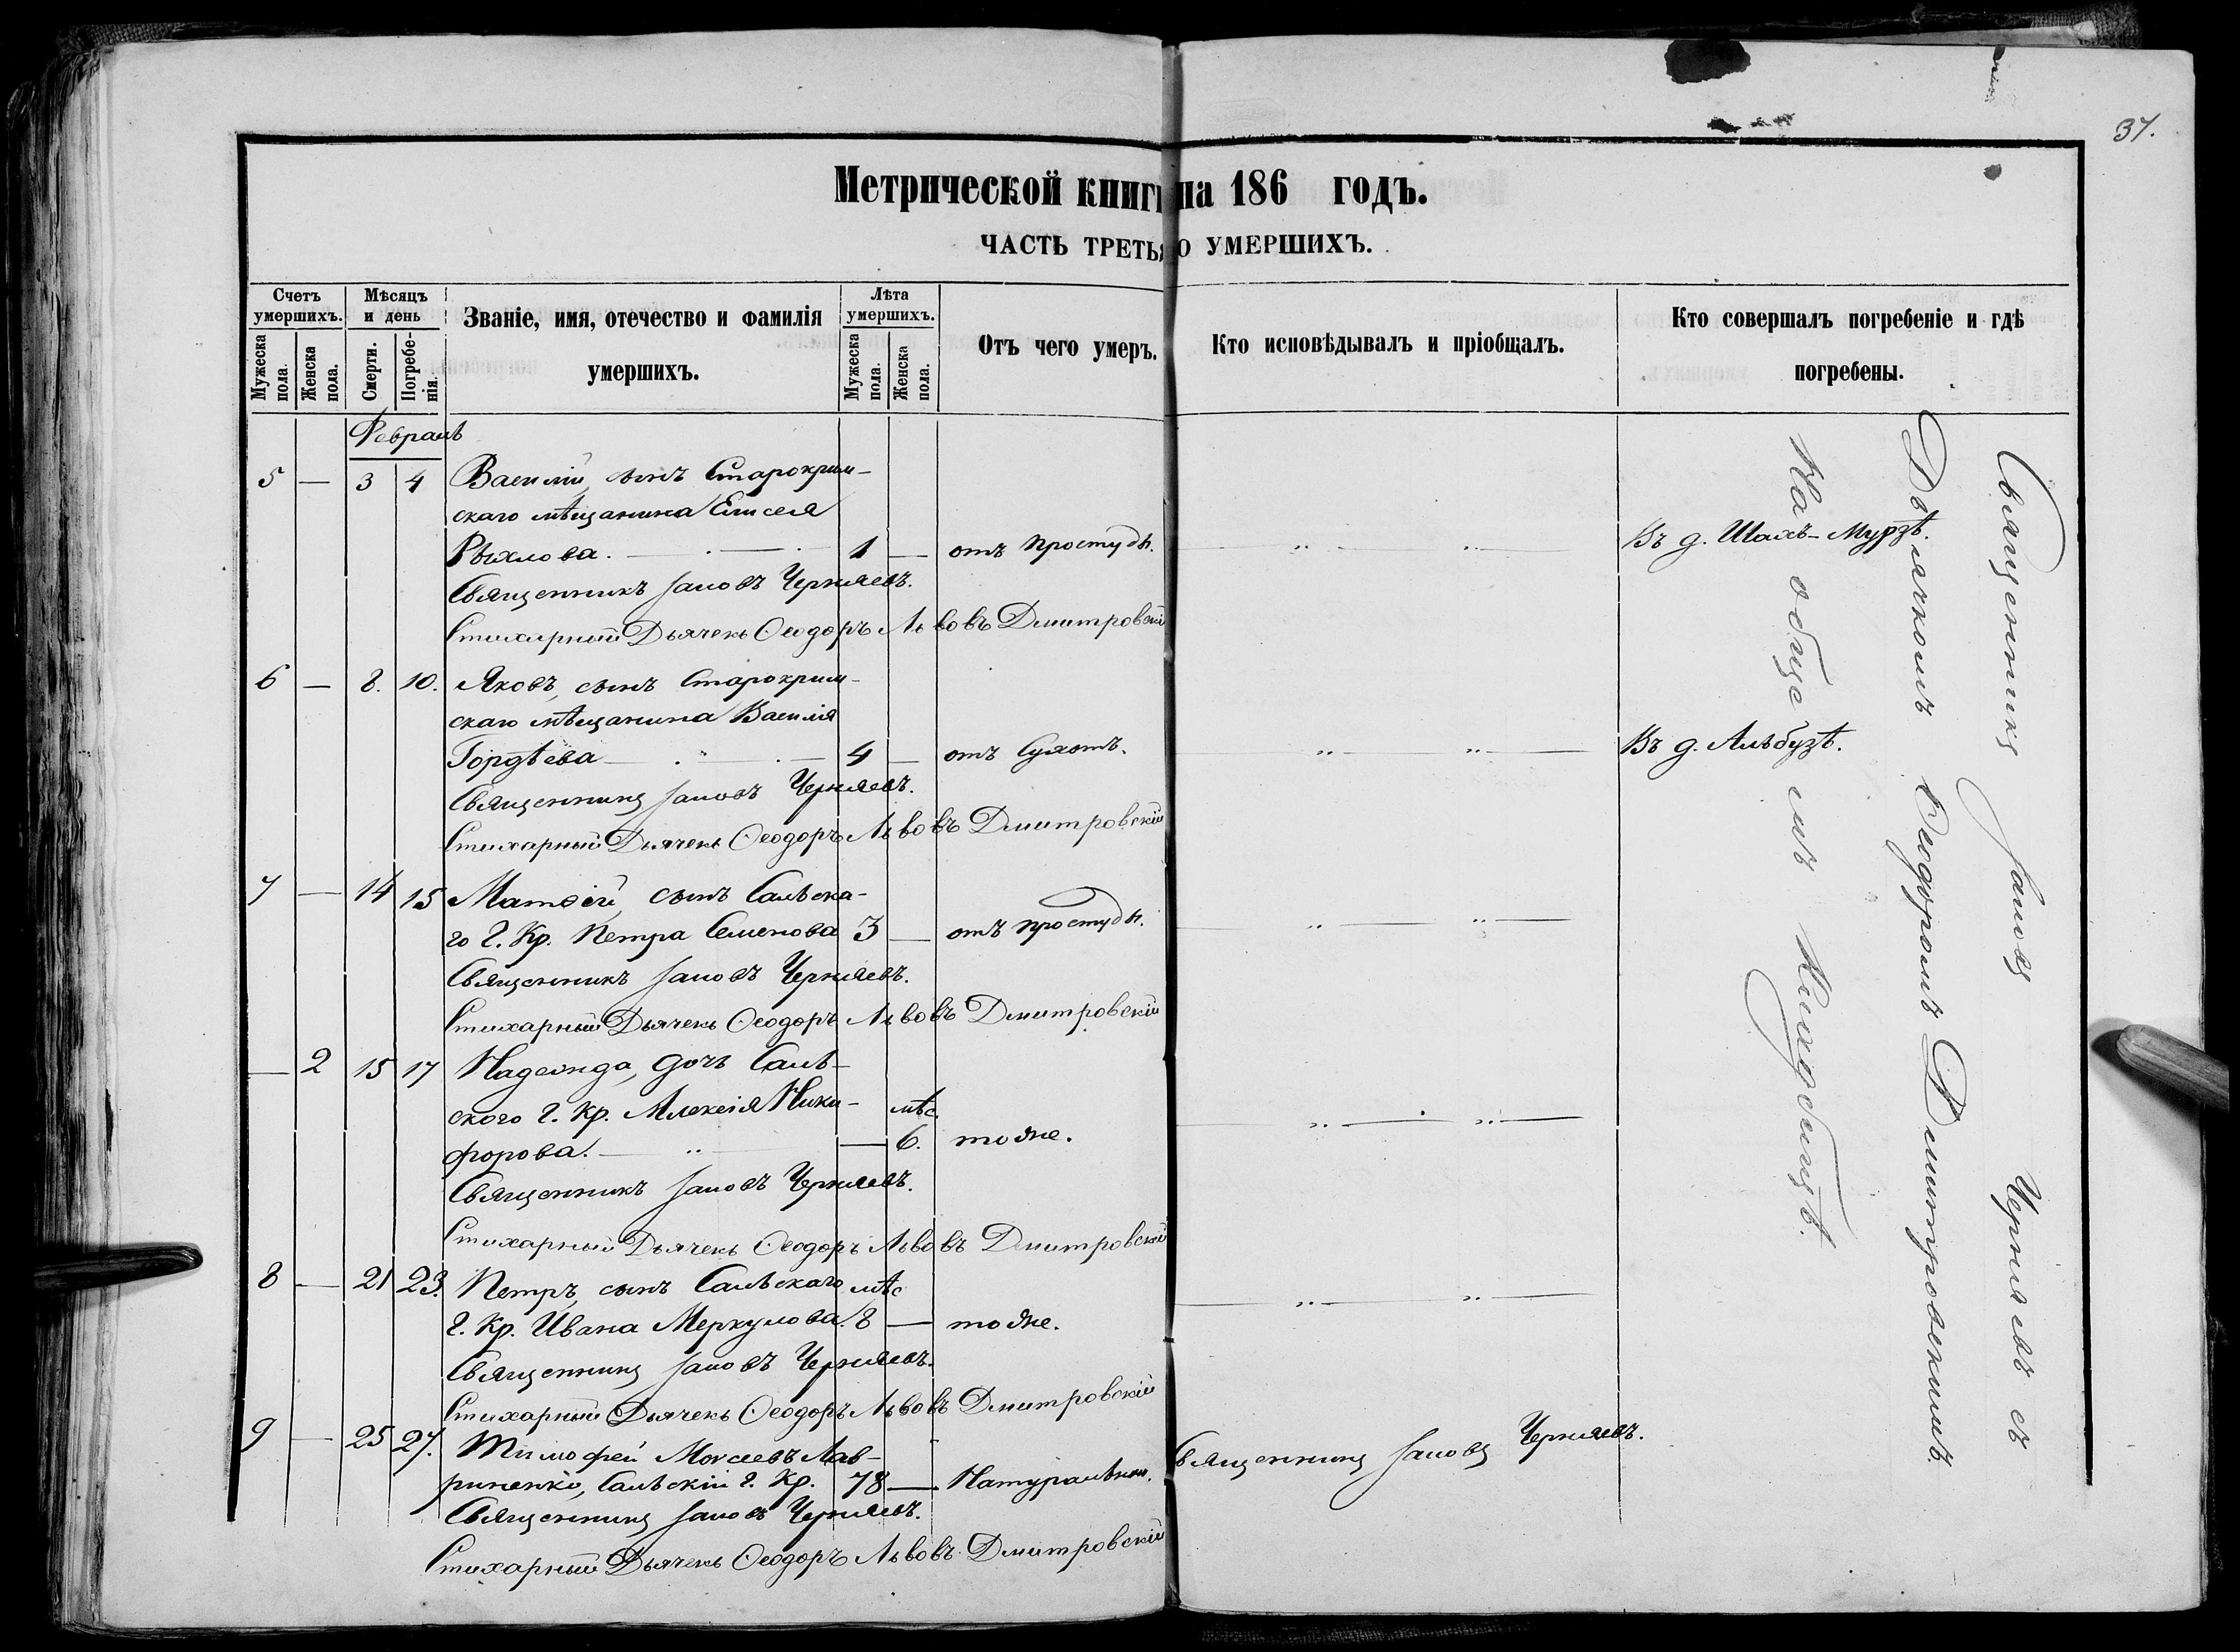 37.
Метрической книги на 186 годъ.
ЧАСТЬ ТРЕТЬЯ О УМЕРШИХЪ.
Счетъ умершихъ.
Мужеска пола.
Женска пола.
Мѣсяцъ и день
Смерти.
Погребенія.
Званіе, имя, отечество и фамилія
умершихъ.
Лѣта умершихъ.
Мужеска пола.
Женска пола.
Отъ чего умеръ.
Кто исповѣдывалъ и пріобщалъ.
Кто совершалъ погребеніе и гдѣ
погребены.
Февраль
5 — 3 4 Василій, сынъ Старокрым-
скаго мѣщанина Елисея
Рыхлова. 1 — отъ простуды. Въ д. Шахъ-Мурзѣ.
Священникъ Іаковъ Черняевъ.
Стихарный Дьячекъ Ѳеодоръ Львовъ Дмитровскій
6 — 8. 10. Яковъ, сынъ Старокрым-
скаго мѣщанина Василія
Гордѣева 4 — отъ Сухотъ. Въ д. Альбузѣ.
Священникъ Іаковъ Черняевъ.
Стихарный Дьячекъ Ѳеодоръ Львовъ Дмитровскій
7 — 14 15 Матѳій, сынъ Сальска-
го Г. Кр. Петра Семенова 3 — отъ простуды.
Священникъ Іаковъ Черняевъ.
Стихарный Дьячекъ Ѳеодоръ Львовъ Дмитровскій
— 2 15 17 Надежда, дочь Саль-
ского Г. Кр. Алексія Ники- мѣс.
форова. — 6. тоже.
Священникъ Іаковъ Черняевъ.
Стихарный Дьячекъ Ѳеодоръ Львовъ Дмитровскій
8 — 21 23. Петръ, сынъ Сальскаго мѣс
Г. Кр. Ивана Меркулова. 8 — тоже.
Священникъ Іаковъ Черняевъ.
Стихарный Дьячекъ Ѳеодоръ Львовъ Дмитровскій
9 — 25 27. Тимофей Моисеевъ Лав-
риненко, Сальскій Г. Кр. 78 — Натурально. Священникъ Іаковъ Черняевъ.
Священникъ Іаковъ Черняевъ.
Стихарный Дьячекъ Ѳеодоръ Львовъ Дмитровскій
Священникъ Іаковъ Черняевъ съ
Дьячкомъ Ѳеодоромъ Дмитровскимъ.
На общемъ Кладбищѣ.